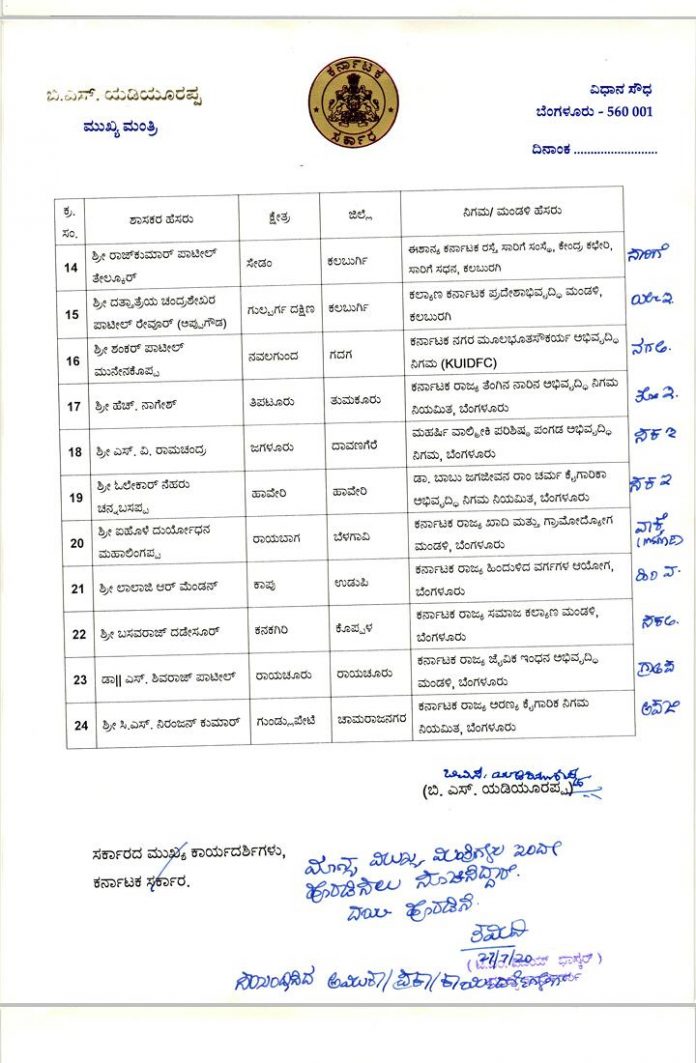 ಬಿ.ಎಸ್. ಯಡಿಯೂರಪ್ಪ
ಮುಖ್ಯ ಮಂತ್ರಿ
ಕರ್ನಾಟಕ
ಸರ್ಕಾರ
ವಿಧಾನ ಸೌಧ
ಬೆಂಗಳೂರು - 560 001
ದಿನಾಂಕ .........................
ಕ್ರ. ಸಂ. ಶಾಸಕರ ಹೆಸರು ಕ್ಷೇತ್ರ ಜಿಲ್ಲೆ ನಿಗಮ/ ಮಂಡಳಿ ಹೆಸರು
14 ಶ್ರೀ ರಾಜ್‌ಕುಮಾರ್ ಪಾಟೀಲ್ ಸೇಡಂ ಕಲಬುರ್ಗಿ ಈಶಾನ್ಯ ಕರ್ನಾಟಕ ರಸ್ತೆ ಸಾರಿಗೆ ಸಂಸ್ಥೆ, ಕೇಂದ್ರ ಕಛೇರಿ, ಸಾರಿಗೆ
ತೇಲ್ಕೂರ್ ಸಾರಿಗೆ ಸಧನ, ಕಲಬುರಗಿ
15 ಶ್ರೀ ದತ್ತಾತ್ರೆಯ ಚಂದ್ರಶೇಖರ ಗುಲ್ಬರ್ಗ ದಕ್ಷಿಣ ಕಲಬುರ್ಗಿ ಕಲ್ಯಾಣ ಕರ್ನಾಟಕ ಪ್ರದೇಶಾಭಿವೃದ್ಧಿ ಮಂಡಳಿ,
ಪಾಟೀಲ್ ರೇವೂರ್ (ಅಪ್ಪುಗೌಡ) ಕಲಬುರಗಿ
16 ಶ್ರೀ ಶಂಕರ್ ಪಾಟೀಲ್ ನವಲಗುಂದ ಗದಗ ಕರ್ನಾಟಕ ನಗರ ಮೂಲಭೂತಸೌಕರ್ಯ ಅಭಿವೃದ್ಧಿ
ಮುನೇನಕೊಪ್ಪ ನಿಗಮ (KUIDFC)
17 ಶ್ರೀ ಹೆಚ್. ನಾಗೇಶ್ ತಿಪಟೂರು ತುಮಕೂರು ಕರ್ನಾಟಕ ರಾಜ್ಯ ತೆಂಗಿನ ನಾರಿನ ಅಭಿವೃದ್ಧಿ ನಿಗಮ
ನಿಯಮಿತ, ಬೆಂಗಳೂರು
18 ಶ್ರೀ ಎಸ್. ವಿ. ರಾಮಚಂದ್ರ ಜಗಳೂರು ದಾವಣಗೆರೆ ಮಹರ್ಷಿ ವಾಲ್ಮೀಕಿ ಪರಿಶಿಷ್ಠ ಪಂಗಡ ಅಭಿವೃದ್ಧಿ
ನಿಗಮ, ಬೆಂಗಳೂರು
19 ಶ್ರೀ ಓಲೇಕಾರ್ ನೆಹರು ಹಾವೇರಿ ಹಾವೇರಿ ಡಾ. ಬಾಬು ಜಗಜೀವನ ರಾಂ ಚರ್ಮ ಕೈಗಾರಿಕಾ
ಚನ್ನಬಸಪ್ಪ ಅಭಿವೃದ್ಧಿ ನಿಗಮ ನಿಯಮಿತ, ಬೆಂಗಳೂರು
20 ಶ್ರೀ ಐಹೊಳೆ ದುರ್ಯೋಧನ ರಾಯಬಾಗ ಬೆಳಗಾವಿ ಕರ್ನಾಟಕ ರಾಜ್ಯ ಖಾದಿ ಮತ್ತು ಗ್ರಾಮೋದ್ಯೋಗ
ಮಹಾಲಿಂಗಪ್ಪ ಮಂಡಳಿ, ಬೆಂಗಳೂರು
21 ಶ್ರೀ ಲಾಲಾಜಿ ಆರ್ ಮೆಂಡನ್ ಕಾಪು ಉಡುಪಿ ಕರ್ನಾಟಕ ರಾಜ್ಯ ಹಿಂದುಳಿದ ವರ್ಗಗಳ ಆಯೋಗ,
ಬೆಂಗಳೂರು
22 ಶ್ರೀ ಬಸವರಾಜ್ ದಡೇಸೂರ್ ಕನಕಗಿರಿ ಕೊಪ್ಪಳ ಕರ್ನಾಟಕ ರಾಜ್ಯ ಸಮಾಜ ಕಲ್ಯಾಣ ಮಂಡಳಿ,
ಬೆಂಗಳೂರು
23 ಡಾ|| ಎಸ್. ಶಿವರಾಜ್ ಪಾಟೀಲ್ ರಾಯಚೂರು ರಾಯಚೂರು ಕರ್ನಾಟಕ ರಾಜ್ಯ ಜೈವಿಕ ಇಂಧನ ಅಭಿವೃದ್ಧಿ
ಮಂಡಳಿ, ಬೆಂಗಳೂರು
24 ಶ್ರೀ ಸಿ.ಎಸ್. ನಿರಂಜನ್ ಕುಮಾರ್ ಗುಂಡ್ಲುಪೇಟೆ ಚಾಮರಾಜನಗರ ಕರ್ನಾಟಕ ರಾಜ್ಯ ಅರಣ್ಯ ಕೈಗಾರಿಕ ನಿಗಮ
ನಿಯಮಿತ, ಬೆಂಗಳೂರು
(ಬಿ. ಎಸ್. ಯಡಿಯೂರಪ್ಪ)
ಸರ್ಕಾರದ ಮುಖ್ಯ ಕಾರ್ಯದರ್ಶಿಗಳು,
ಕರ್ನಾಟಕ ಸರ್ಕಾರ.
ಮಾನ್ಯ ಮುಖ್ಯ ಮಂತ್ರಿಗಳು ಇಂದೇ
ಹೊರಡಿಸಲು ಸೂಚಿಸಿದ್ದಾರೆ.
ದಯ ಹೊರಡಿಸಿ.
27/7/20
ಭಾಸ್ಕರ್)